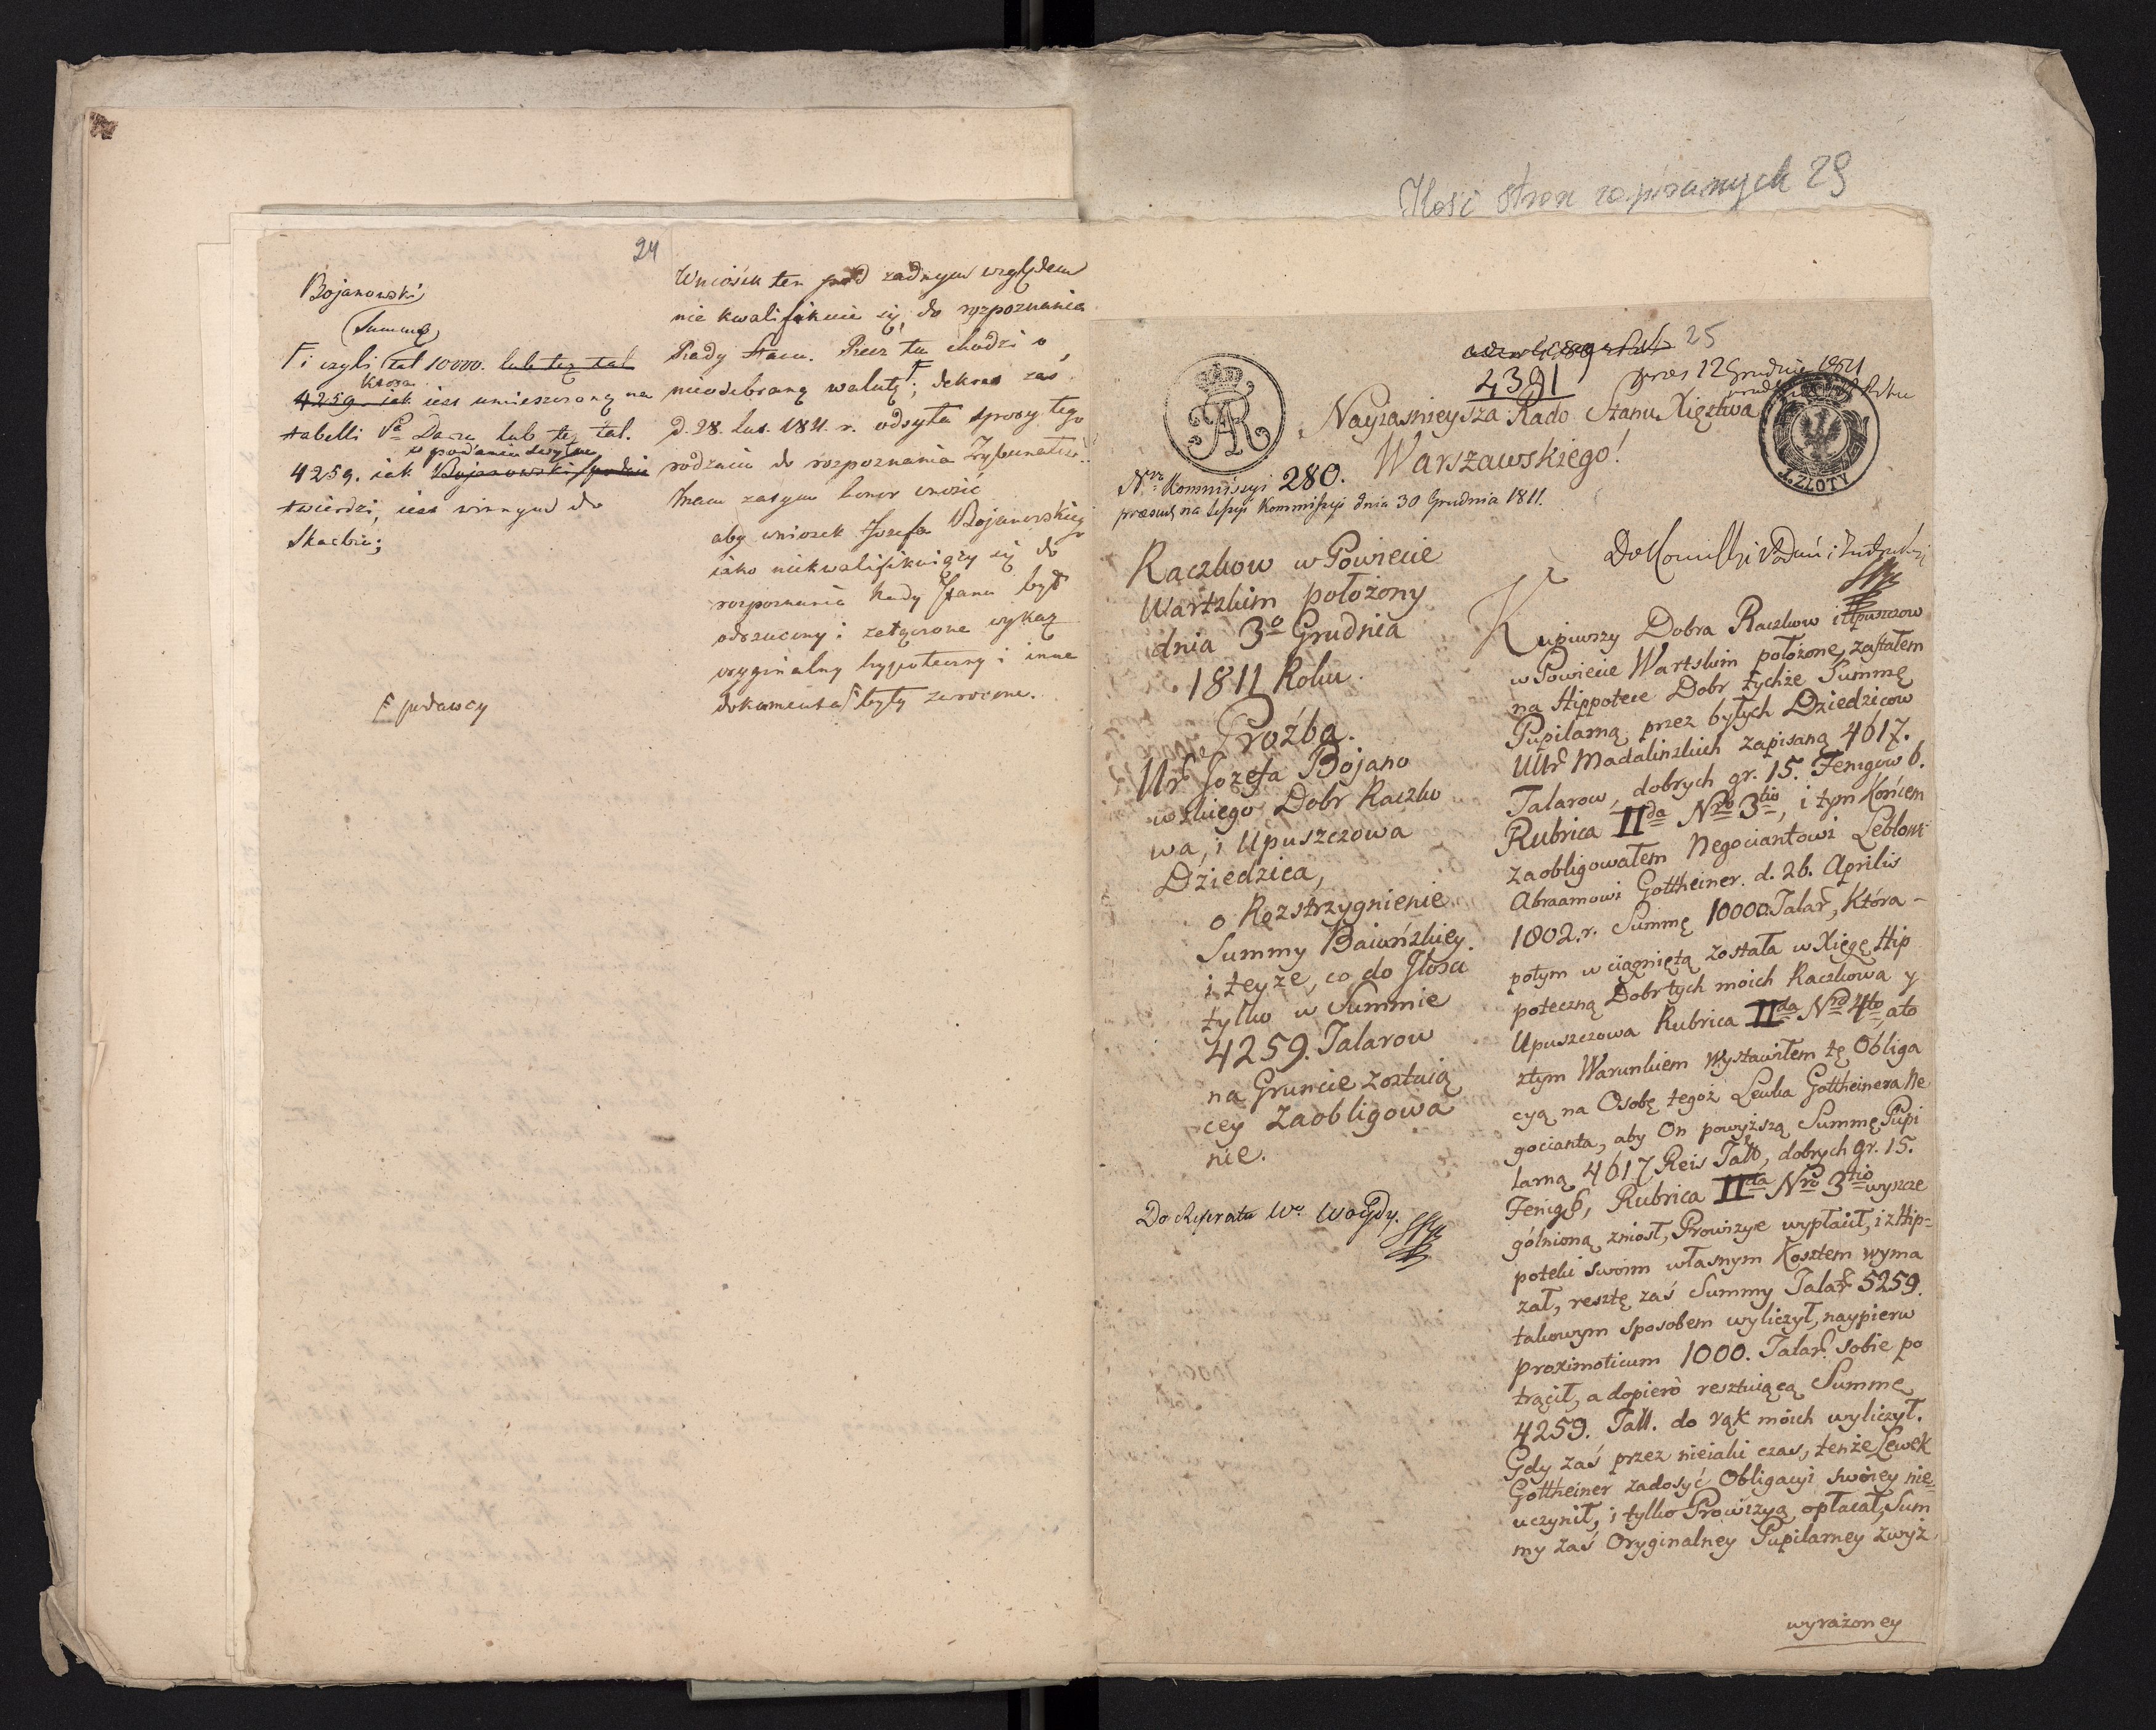 Ilość stron zapisanych 29
24
Bojanowski
Summę
F i czyli tal 10000. lub też tal
4259. iak iest umieszczoną na
która
tabelli Pa Daru lub też tal.
w podaniu swym
4259. iak Bojanowski
twierdzi, iest winnym do
Skarbu;
F podawcy
Wniosek ten pod żadnym względem
nie kwalifikuie się do rozpoznania
Rady Stanu. Rzecz tu chodzi o
nieodebraną walutę F; dekret zaś
d. 28. lut. 1811. r. odsyła sprawy tego
rodzaiu do rozpoznania Trybunałów.
Mam zatym honor wnosić
aby wniosek Jozefa Bojanowskiego
iako niekwalifikuiący się do
rozpoznania Rady Stanu był
odrzucony i załączone wykaz
oryginalny hypoteczny i inne
dokumenta F były zwrócone.
25
2391
praes 12 Grudnia 1811
1. ZŁOTY
Nayiasnieysza Rado Stanu Xięztwa
Warszawskiego!
Nro Kommissyi 280.
praesent. na Sessyi Kommissyi dnia 30 Grudnia 1811.
Raczkow w Powiecie
Wartzkim położony
dnia 3o Grudnia
1811 Roku.
Proźba.
Ur Jozefa Bojano
wskiego Dobr Raczko
wa, i Upuszczowa
Dziedzica,
o Rozstrzygnienie
Summy Baiońskiey.
i teyże, co do Jłosci
tylko w Summie
4259. Talarow
na Gruncie zostaią
cey Zaobligowa
nie.
Do Referatu Wo Woydy.
Kupiwszy Dobra Raczkow i Upuszczow
w Powiecie Wartskim położone, zastałem
na Hippotece Dobr tychże Summę
Pupilarną przez byłych Dziedzicow
UUr Madalinskich zapisaną 4617.
Talarow, dobrych gr. 15. Fenigow 6.
Rubrica IIda Nro 3tio, i tym końcem
zaobligowałem Negociantowi Leblowi
Abraamowi Gottheiner. d. 26. Aprilis
1802. r. Summę 10000. Talar, Która –
potym wciągniętą została w Xięgę Hip
poteczną Dobr tych moich Raczkowa y
Upuszczowa Rubrica IIda Nro 4to, a to
ztym Warunkiem wystawiłem tę Obliga
cyą na Osobę tegoż Lewka Gottheinera Ne
gocianta, aby On powyższą Summę Pupi
larną 4617 Reis Tall, dobrych gr. 15.
Fenig 6, Rubrica IIda Nro 3tio wyszcze
gólnioną zniosł, Prowizye wypłacił, i z Hip=
poteki swoim własnym Kosztem wyma
zał, resztę zaś Summy Talar 5259.
takowym sposobem wyliczył, naypierw
proximoticum 1000. Talar. sobie po
trącił, a dopiero resztuiącą Summę
4259. Tall. do rąk moich wyliczył.
Gdy zaś przez nieiaki czas, tenże Lewek
Gottheiner zadosyć Obligacyi swoiey nie=
uczynił, i tylko Prowizyą opłacał, Sum
my zaś Oryginalney Pupilarney zwyż
wyrażoney